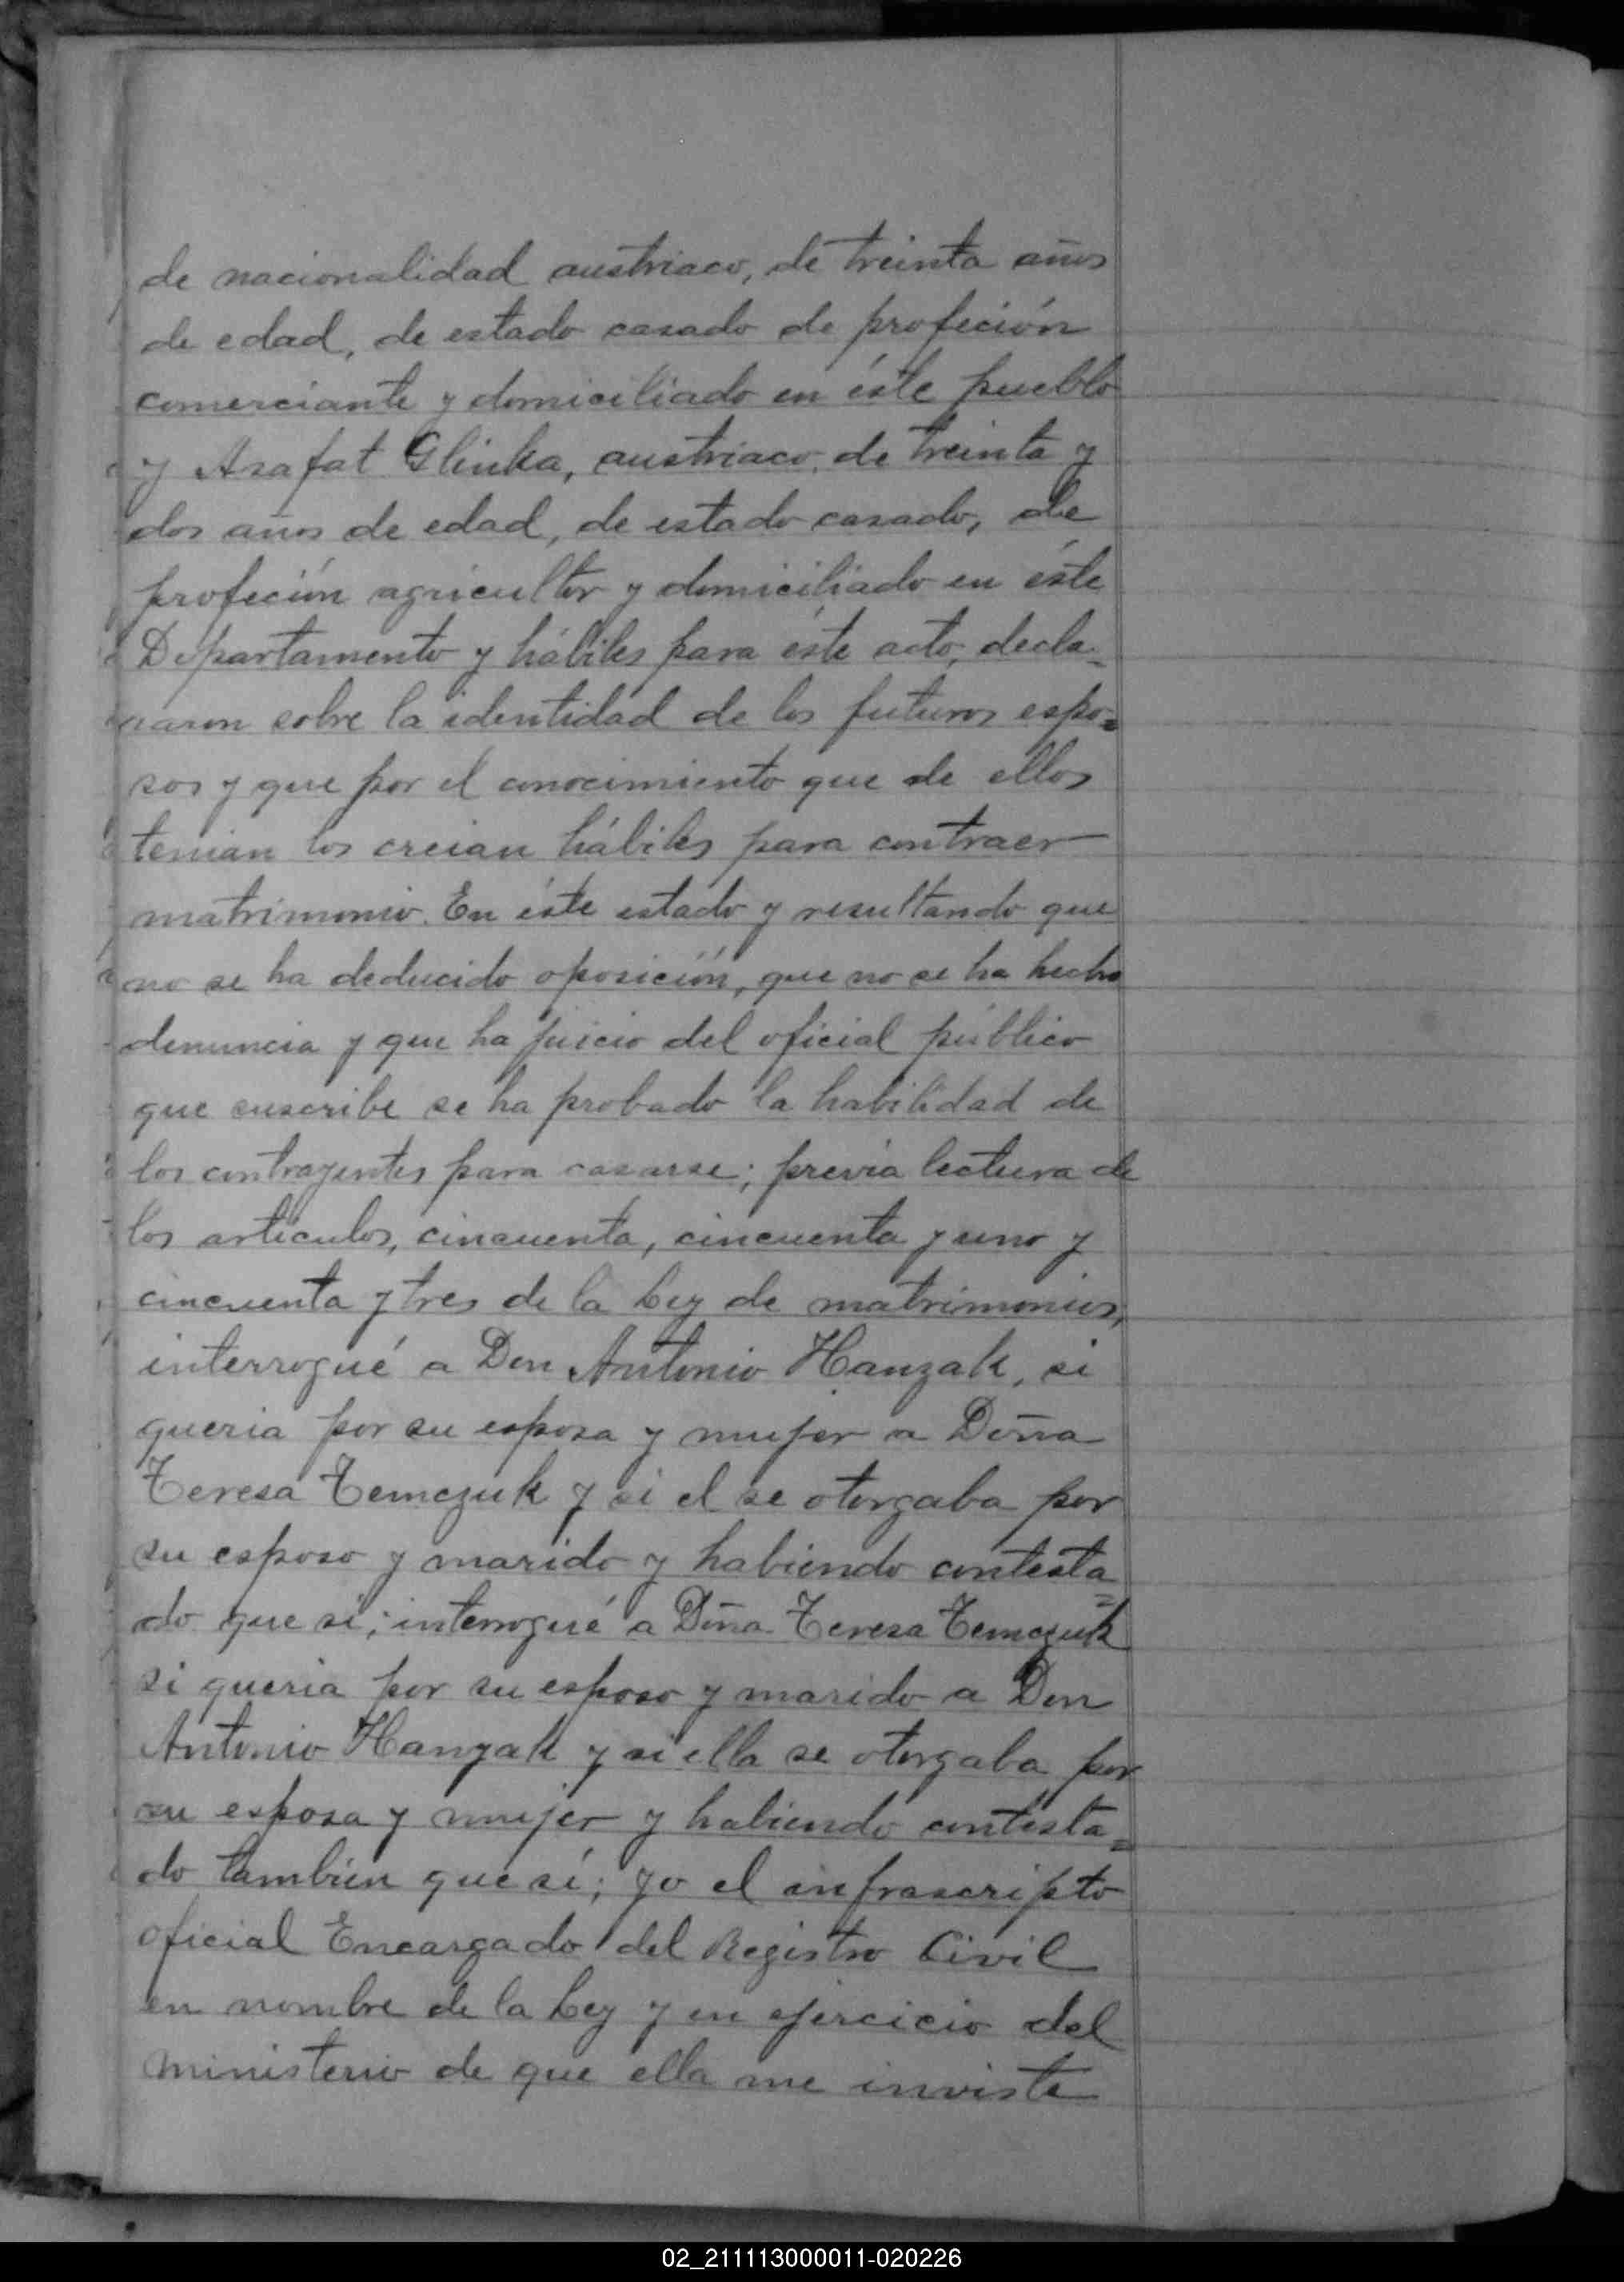 de nacionalidad austriaco, de treinta años
de edad, de estado casado de profeción
comerciante y domiciliado en éste pueblo
y Asafat Glinka, austriaco, de treinta y
dos años de edad, de estado casado, de
profeción agricultor y domiciliado en éste
Departamento y hábiles para éste acto, decla=
raron sobre la identidad de los futuros espo=
sos y que por el conocimiento que de ellos
tenian los creian hábiles para contraer
matrimonio. En éste estado y resultando que
no se ha deducido oposición, que no se ha hecho
denuncia y que ha juicio del oficial público
que suscribe se ha probado la habilidad de
los contrayentes para casarse; previa lectura de
los articulos, cincuenta, cincuenta y uno y
cincuenta y tres de la Ley de matrimonios,
interrogué a Don Antonio Hanzak, si
queria por su esposa y mujer a Doña
Teresa Temczuk y si el se otorgaba por
su esposo y marido y habiendo contesta=
do que si; interrogué a Doña Teresa Temczuk
si queria por su esposo y marido a Don
Antonio Hanzak y si ella se otorgaba por
su esposa y mujer y habiendo contesta=
do tambien que sí; yo el infrascripto
oficial Encargado del Registro Civil
en nombre de la Ley y en ejercicio del
ministerio de que ella me inviste
02_211113000011-020226